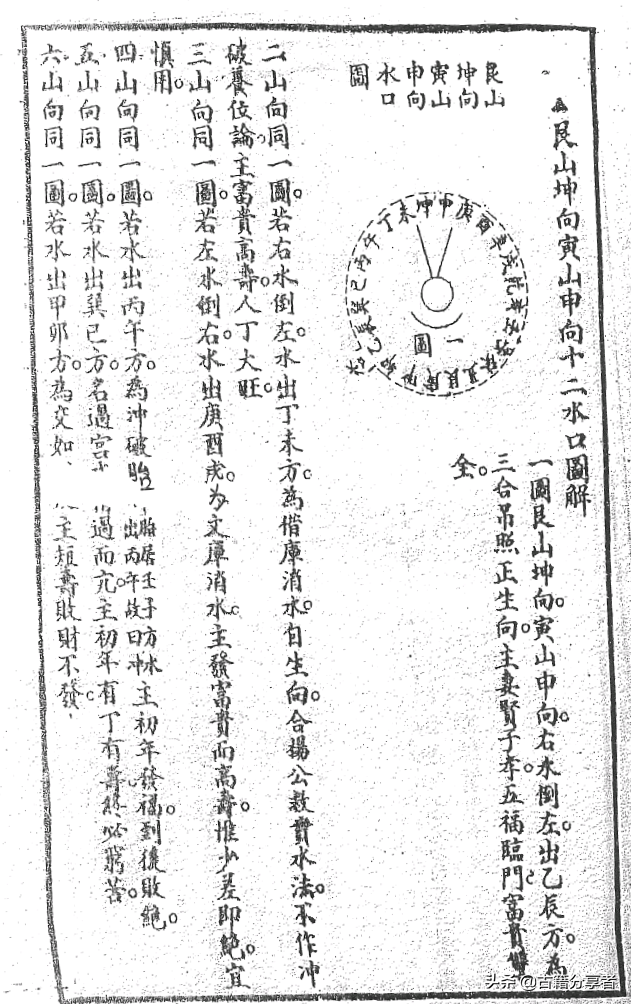 艮山坤向寅山申向十二水口圖解
一圖艮山坤向。寅山申向。右水倒左。出乙辰方。為
三合吊照正生向。主妻賢子孝。五福臨門。富貴雙
全。
艮山
坤向
寅山
申向
水口
圖
丁未坤申庚酉辛戌乾亥壬
艮寅甲卯乙辰巽巳丙午
一圖
二山向同一圖。若右水倒左。水出丁未方。為借庫消水。自生向。合楊公救貧水法。不作冲
破養位論。主富貴高壽。人丁大旺。
三山向同一圖。若左水倒右。水出庚酉戌。為文庫消水。主發富貴而高壽。惟少差即絕。宜
慎用。
四山向同一圖。若水出丙午方。為冲破胎 胎居壬子方水出丙午故曰冲 主初年發福。到後敗絕。
五山向同一圖。若水出巽巳方。名過宮 過而亢。主初年有丁有壽。終必窮苦。
六山向同一圖。若水出甲卯方。為交如、 主短壽敗財不發、
头条@古籍分享者